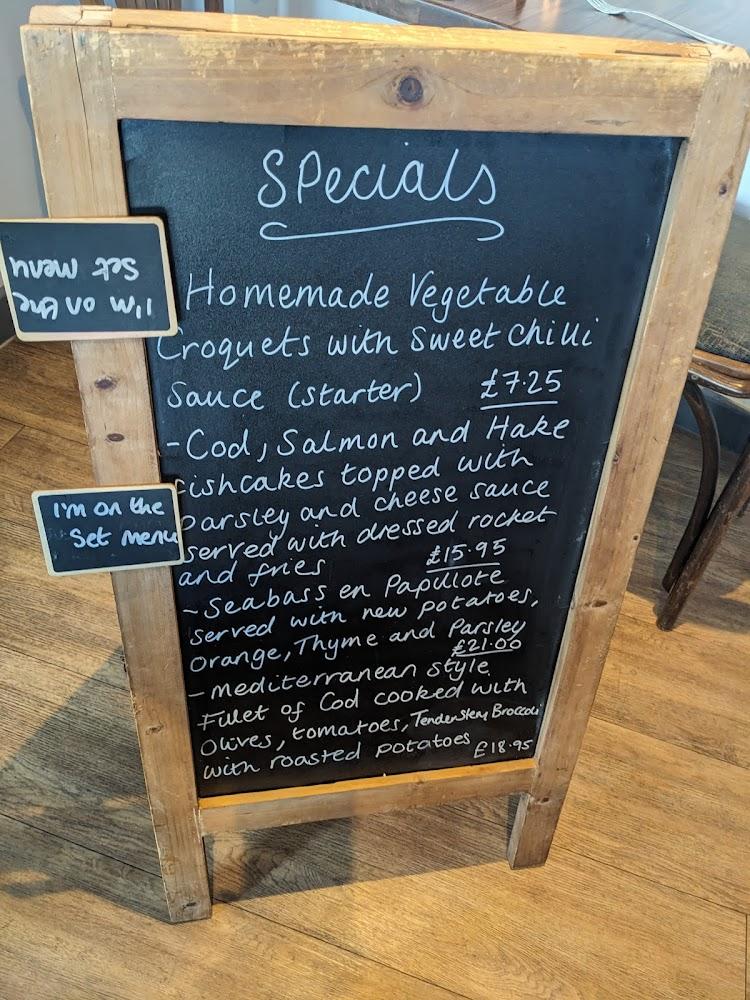 Specials
I'm on the
Set menu
Homemade Vegetable
Croquets with Sweet chilli
Sauce (starter) £7.25
-Cod, Salmon and Hake
fishcakes topped with
parsley and cheese sauce
served with dressed rocket
and fries £15.95
-Seabass en Papillote
served with new potatoes,
orange, Thyme and Parsley
£21.00
-mediterranean style
Fillet of Cod cooked with
Olives, tomatoes, Tenderstem Broccoli
with roasted potatoes £18.95
I'm on the
Set menu